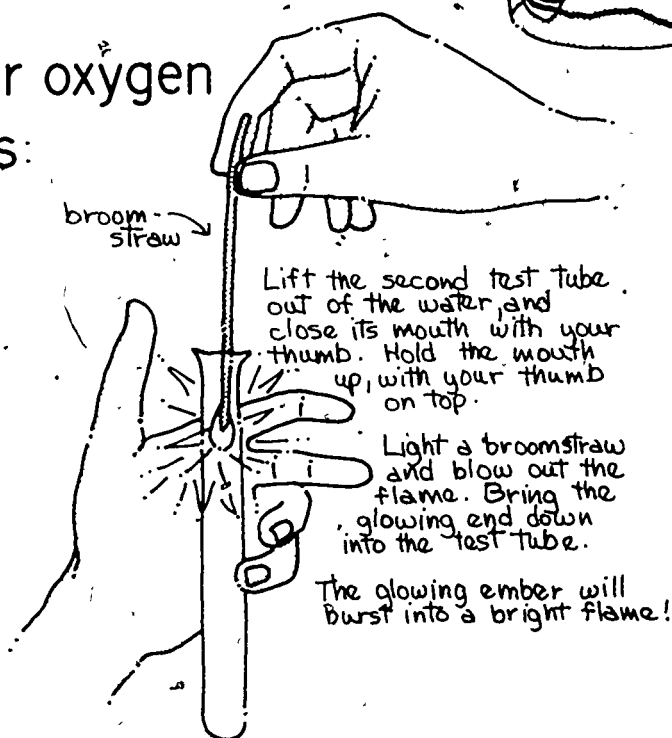 r oxygen
s:
broom-
straw
Lift the second test tube
out of the water, and
close its mouth with your
thumb. Hold the mouth
up, with your thumb
on top.
Light a broomstraw
and blow out the
flame. Bring the
glowing end down
into the test tube.
The glowing ember will
Burst into a bright flame!